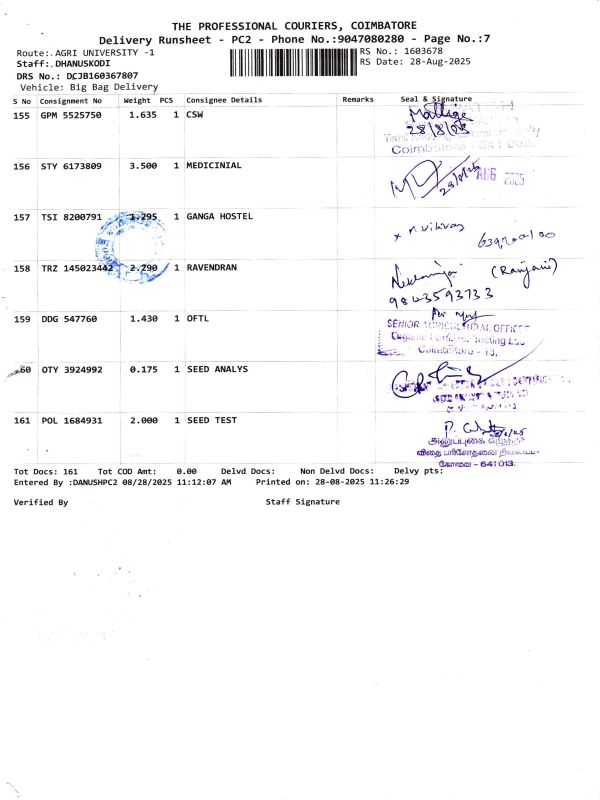 THE PROFESSIONAL COURIERS, COIMBATORE
Delivery Runsheet - PC2 - Phone No.:9047080280 - Page No.:7
Route: AGRI UNIVERSITY -1
RS No.: 1603678
Staff: DHANUSKODI
RS Date: 28-Aug-2025
DRS No.: DCJB160367807
Vehicle: Big Bag Delivery
S No Consignment No Weight PCS Consignee Details Remarks Seal & Signature
155 GPM 5525750 1.635 1 CSW
Coimbatore - 641 003.
156 STY 6173809 3.500 1 MEDICINIAL
AUG 2025
157 TSI 8200791 1.295 1 GANGA HOSTEL
158 TRZ 145023442 2.290 1 RAVENDRAN
(Ranjani)
9843593733
159 DDG 547760 1.430 1 OFTL
SENIOR AGRICULTURAL OFFICER
Coimbatore - 13.
160 OTY 3924992 0.175 1 SEED ANALYS
161 POL 1684931 2.000 1 SEED TEST
விதை பரிசோதனை நிலையம்
கோவை - 641 013.
Tot Docs: 161 Tot COD Amt: 0.00 Delvd Docs: Non Delvd Docs: Delvy pts:
Entered By :DANUSHPC2 08/28/2025 11:12:07 AM Printed on: 28-08-2025 11:26:29
Verified By Staff Signature